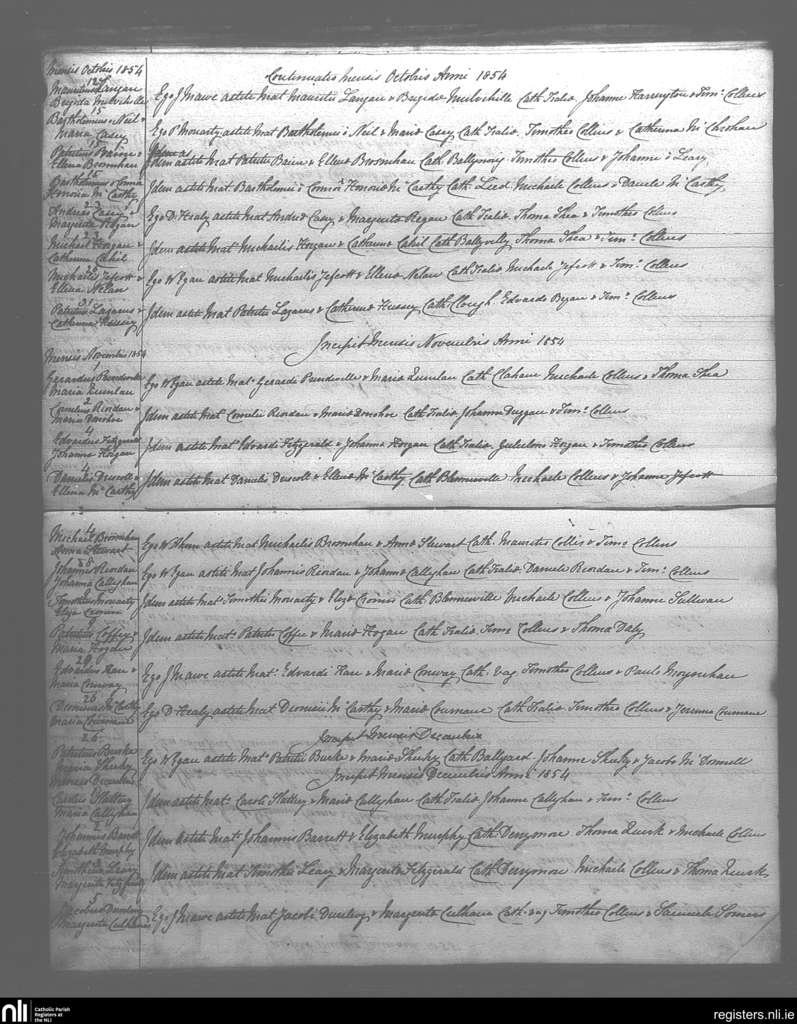 Mensis Octobris 1854
Continuatio Mensis Octobris Anni 1854
12
Mauritius Langan
Brigida Mulvihille
Ego J Mawe astiti Mat Mauritii Langan & Brigida Mulvihille Cath Tralia Johanne Harrington & Tim. Collins
15
Bartholomeus o Neil &
Maria Casey
Ego P Moriarty astiti Mat Bartholomei o Neil & Maria Casey Cath Tralia Timotheo Collins & Catherina Mc
15
Patritius &
Ellena Brosnahan
Idem astiti Mat Patritii & Ellena Brosnahan Cath Timotheo Collins & Johanne o Leary
15
Bartholomeus o Connor
Honoria Mc Carthy
Idem astiti Mat Bartholomei o Connor & Honoria Mc Carthy Cath Michaele Collins & Daniele Mc Carthy
23
Andreas Casey &
Margarita Regan
Ego D Healy astiti Mat Andrea Casey & Margarita Regan Cath Tralia Thoma Shea & Timotheo Collins
23
Michael Horgan &
Catherina Cahil
Idem astiti Mat Michaelis Horgan & Catherina Cahil Cath Ballyvelly Thoma Shea & Tim. Collins
Michaelis Jefcott &
Ellena Nelan
Ego W Egan astiti Mat Michaelis Jefcott & Ellena Nelan Cath Tralia Michaele Jefcott & Tim. Collins
31
Patritius Lazarus &
Catherina Hussey
Idem astiti Mat Patritii Lazarus & Catherina Hussey Cath Clough Edvardo Bryan & Tim. Collins
Incipit Mensis Novembris Anni 1854
Mensis Novembris 1854
1
Gerardus
Maria Quinlan
Ego W Egan astiti Mat. Gerardi & Maria Quinlan Cath Clahane Michaele Collins & Thoma Shea
2
Cornelius Riordan &
Maria Donohoe
Idem astiti Mat. Cornelii Riordan & Maria Donohoe Cath Tralia Johanne Duggan & Tim. Collins
4
Edvardus Fitzgerald
Johanna Horgan
Idem astiti Mat. Edvardi Fitzgerald & Johanna Horgan Cath Tralia Gulielmo Hogan & Timotheo Collins
4
Danielis Driscoll &
Ellena Mc Carthy
Idem astiti Mat Danielis Driscoll & Ellena Mc Carthy Cath Blennerville Michaele Collins & Johanne Jefcott
4
Michael Brosnahan
Anna Stewart
Ego astiti Mat Michaelis Brosnahan & Anna Stewart Cath. Mauritio Collis & Tim. Collins
Johannis Riordan
Johanna Callaghan
Ego W Egan astiti Mat Johannis Riordan & Johanna Callaghan Cath Tralia Daniele Reordan & Tim. Collins
Timotheus Moriarty
Eliza Cronin
Idem astiti Mat. Timothei Moriarty & Eliza Cronin Cath Blennerville Michaele Collins & Johanne Sullivan
9
Patritius Coffey &
Maria Hogan
Idem astiti Mat. Patritii Coffee & Maria Hogan Cath Tralia Tim. Collins & Thoma Daly
Edvardus &
Maria Conway
Ego J Mawe astiti Mat. Edvardi & Maria Conway Cath. vag Timotheo Collins & Paulo Moynihan
26
Dionisius Mc Carthy
Maria Cournane
Ego D Healy astiti Mat Dionisii Mc Carthy & Maria Cournane Cath Tralia Timotheo Collins & Jeremia Cournane
Incipit Mensis Decembris
26
Patritius Burke
Maria Sheehy
Ego W Egan astiti Mat. Patritii Burke & Maria Sheehy Cath Ballyard Johanne Sheehy & Jacobo Mc Donnell
Incipit Mensis Decembris Anni 1854
Mensis Decembris
Carolus Slattery
Maria Callaghan
Idem astiti Mat. Caroli Slattery & Maria Callaghan Cath Tralia Johanne Callaghan & Tim. Collins
2
Johannis Barrett
Elizabeth Murphy
Idem astiti Mat Johannis Barrett & Elizabeth Murphy Cath Derrymore Thoma Quirk & Michaele Collins
Timotheus Leary
Margarita Fitzgerald
Idem astiti Mat Timothei Leary & Margarita Fitzgerald Cath Derrymore Michaele Collins & Thoma Quirk
5
Jacobus Dunlevy
Margarita Culhane
Ego J Mawe astiti Mat Jacobi Dunlevy & Margarita Culhane Cath. vag Timotheo Collins & Samuele Somers
nli
Catholic Parish
Registers at
the NLI
registers.nli.ie